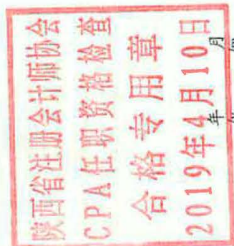 陕西省注册会计师协会
CPA任职资格检查
合格专用章
2019年4月10日
年
月